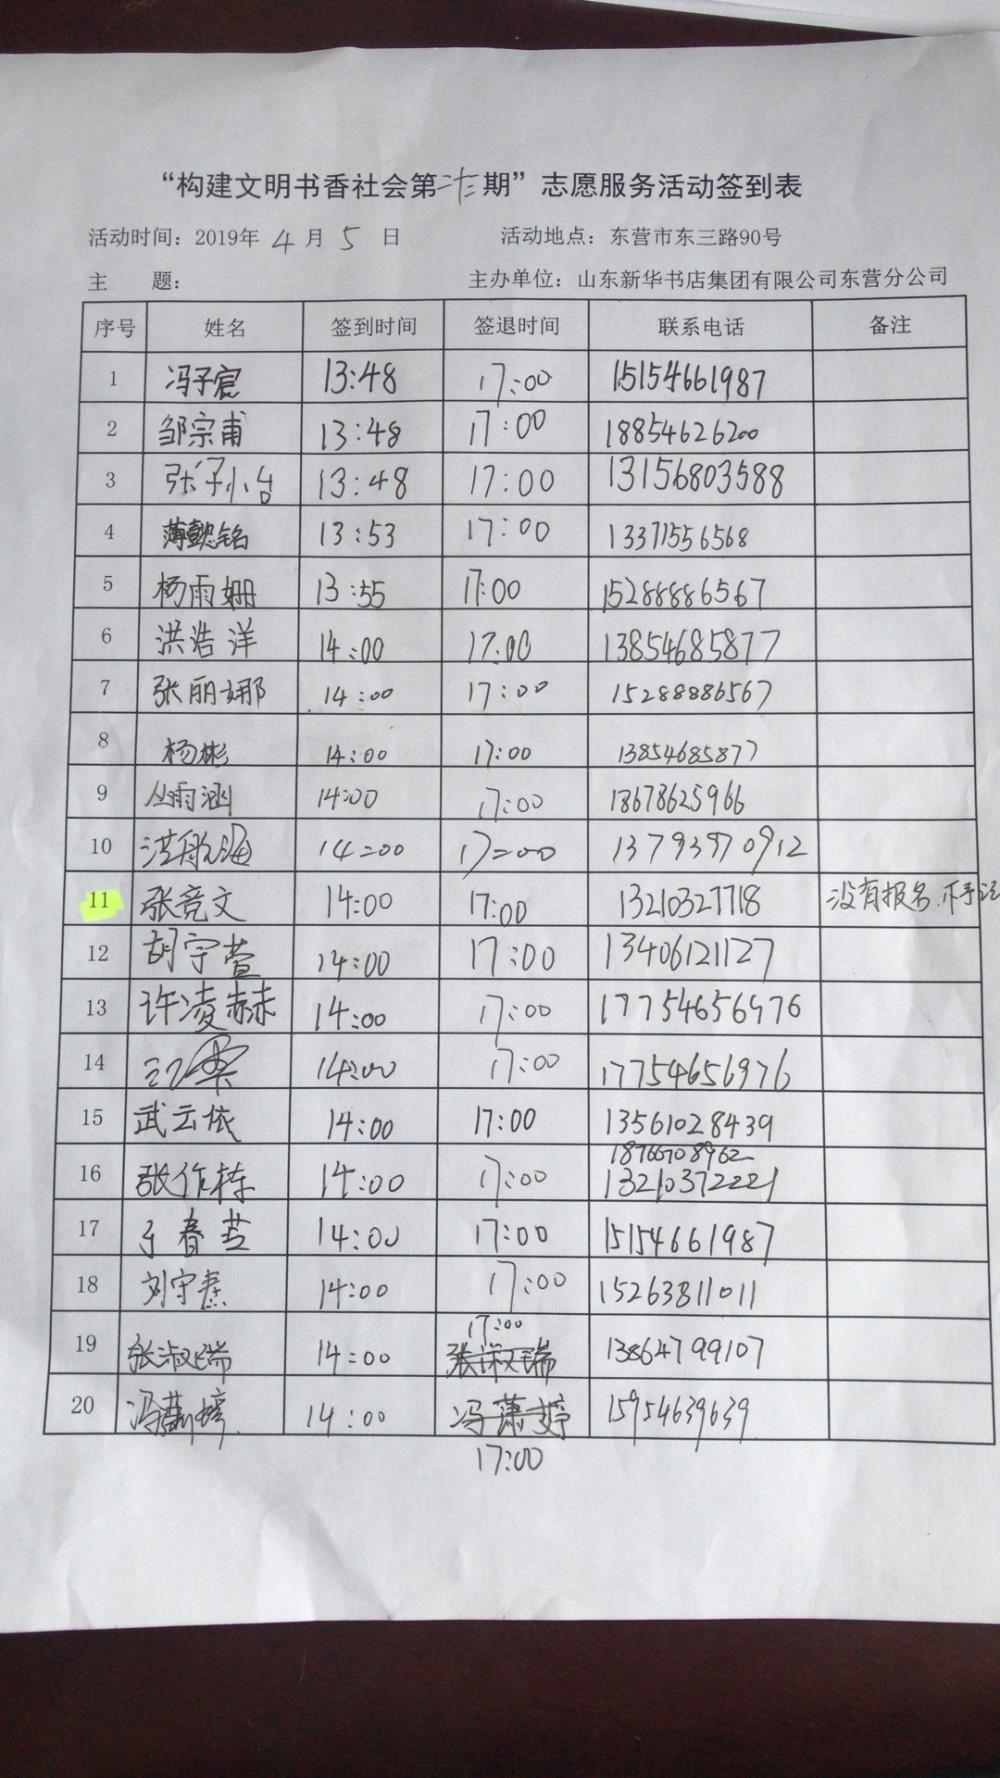 “构建文明书香社会第二十二期”志愿服务活动签到表
活动时间：2019年 4 月 5 日 活动地点：东营市东三路90号
主 题： 主办单位：山东新华书店集团有限公司东营分公司
序号 姓名 签到时间 签退时间 联系电话 备注
1 冯子宸 13:48 17:00 15154661987
2 邹宗甫 13:48 17:00 18854626200
3 张子小台 13:48 17:00 13156803588
4 薄懿铭 13:53 17:00 13371556568
5 杨雨姗 13:55 17:00 15288886567
6 洪浩洋 14:00 17:00 13854685877
7 张丽娜 14:00 17:00 15288886567
8 杨彬 14:00 17:00 13854685877
9 丛雨涵 14:00 17:00 18678625966
10 洪航海 14=00 17=00 13793970912
11 张竞文 14:00 17:00 13210327718 没有报名.
12 胡宇萱 14:00 17:00 13406121127
13 许凌赫 14:00 17:00 17754656976
14 14:00 17:00 17754656976
15 武云依 14:00 17:00 13561028439
16 张作栋 14:00 17:00 18766708962
13210372221
17 于春芸 14:00 17:00 15154661987
18 刘守泰 14:00 17:00 15263811011
19 张淑瑞 14:00 17:00 张淑瑞 13864799107
20 冯萧婷 14:00 冯萧婷 15954639639
17:00